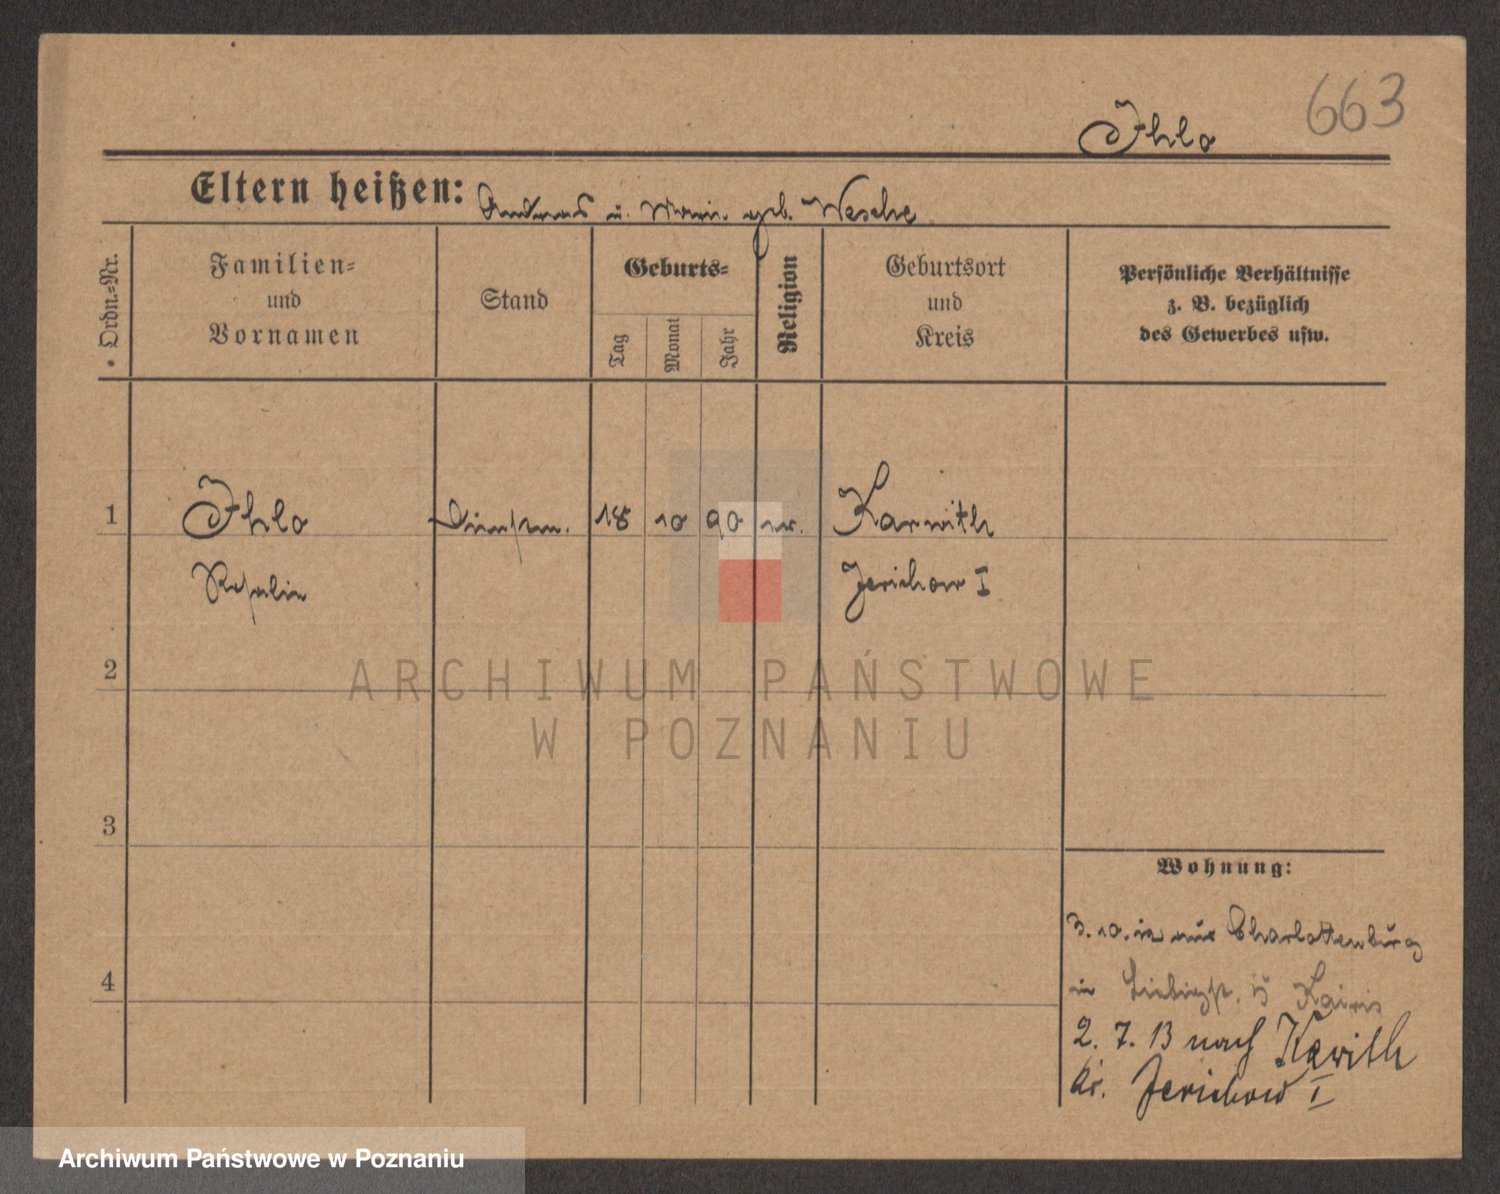 663
Ihlo
Eltern heißen: Andreas u. Marie geb. Wesche
Ordn.-Nr.
Familien-
und
Vornamen
Stand
Geburts-
Tag
Monat
Jahr
Religion
Geburtsort
und
Kreis
Persönliche Verhältnisse
z. B. bezüglich
des Gewerbes usw.
1
Ihlo
18 10 90
Karwith
Rosalie
Jerichow I
2
ARCHIWUM PAŃSTWOWE
W POZNANIU
3
Wohnung:
3. 10. 12 aus Charlottenburg
4
in Liebigst.
2. 7. 13 nach Karith
Kr. Jerichow I
Archiwum Państwowe w Poznaniu